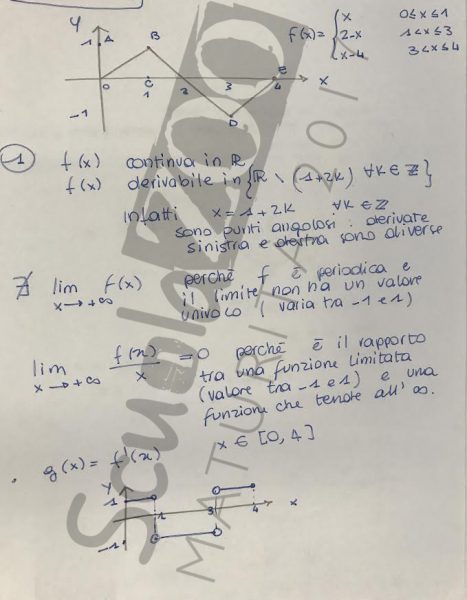 y
1 A B
f(x) = { x 0≤x≤1
2-x 1<x≤3
x-4 3<x≤4
0 C 1 2 3 4 E x
-1 D
1 f(x) continua in ℝ
f(x) derivabile in {ℝ \ (1+2k) ∀k∈ℤ}
Infatti x=1+2k ∀k∈ℤ
sono punti angolosi: derivate
sinistra e destra sono diverse
∄ lim f(x) perché f è periodica e
x→+∞ il limite non ha un valore
univoco (varia tra -1 e 1)
lim f(x)/x = 0 perché è il rapporto
x→+∞ tra una funzione limitata
(valore tra -1 e 1) e una
funzione che tende all' ∞.
g(x) = f'(x) x ∈ [0,4]
y
1
1 3 4 x
-1
Scuola ZOO
MATURITÀ 201